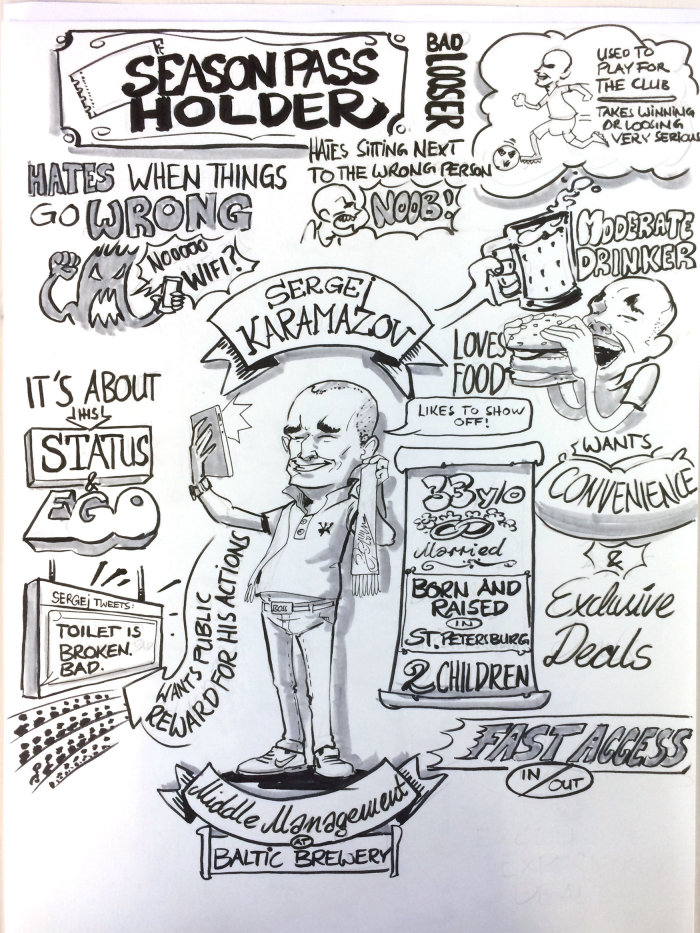 SEASON PASS
HOLDER
BAD
LOOSER
USED TO
PLAY FOR
THE CLUB
TAKES WINNING
OR LOOSING
VERY SERIOUS
HATES WHEN THINGS
GO WRONG
NOOOOO
WIFI?
HATES SITTING NEXT
TO THE WRONG PERSON
NOOB!
MODERATE
DRINKER
SERGEJ
KARAMAZOV
LOVES
FOOD
IT'S ABOUT
HIS
STATUS
&
EGO
LIKES TO SHOW
OFF!
33 y/o
Married
BORN AND
RAISED
IN
ST. PETERSBURG
2 CHILDREN
WANTS
CONVENIENCE
&
Exclusive
Deals
SERGEJ TWEETS:
TOILET IS
BROKEN.
BAD.
WANTS PUBLIC
REWARD FOR HIS ACTIONS
BOSS
FAST ACCESS
IN/OUT
Middle Management
AT
BALTIC BREWERY